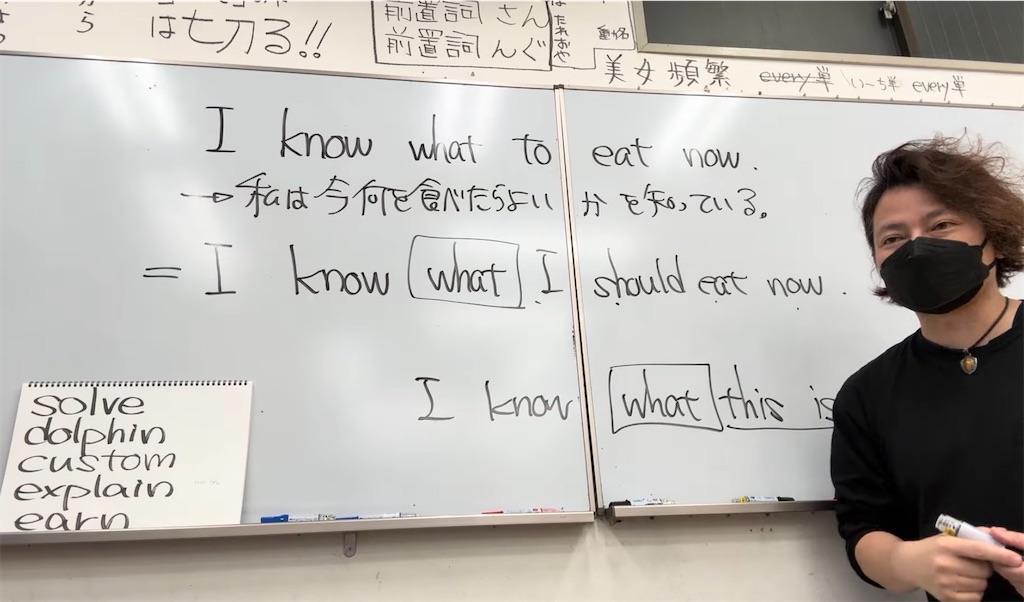 から
は七刀る!!
前置詞 さん
前置詞 んぐ
動名
美女頻繁 every単 い〜ち単 every単
I know what to eat now.
→私は今何を食べたらよいかを知っている。
= I know what I should eat now.
I know what this is
solve
dolphin
custom
explain
earn